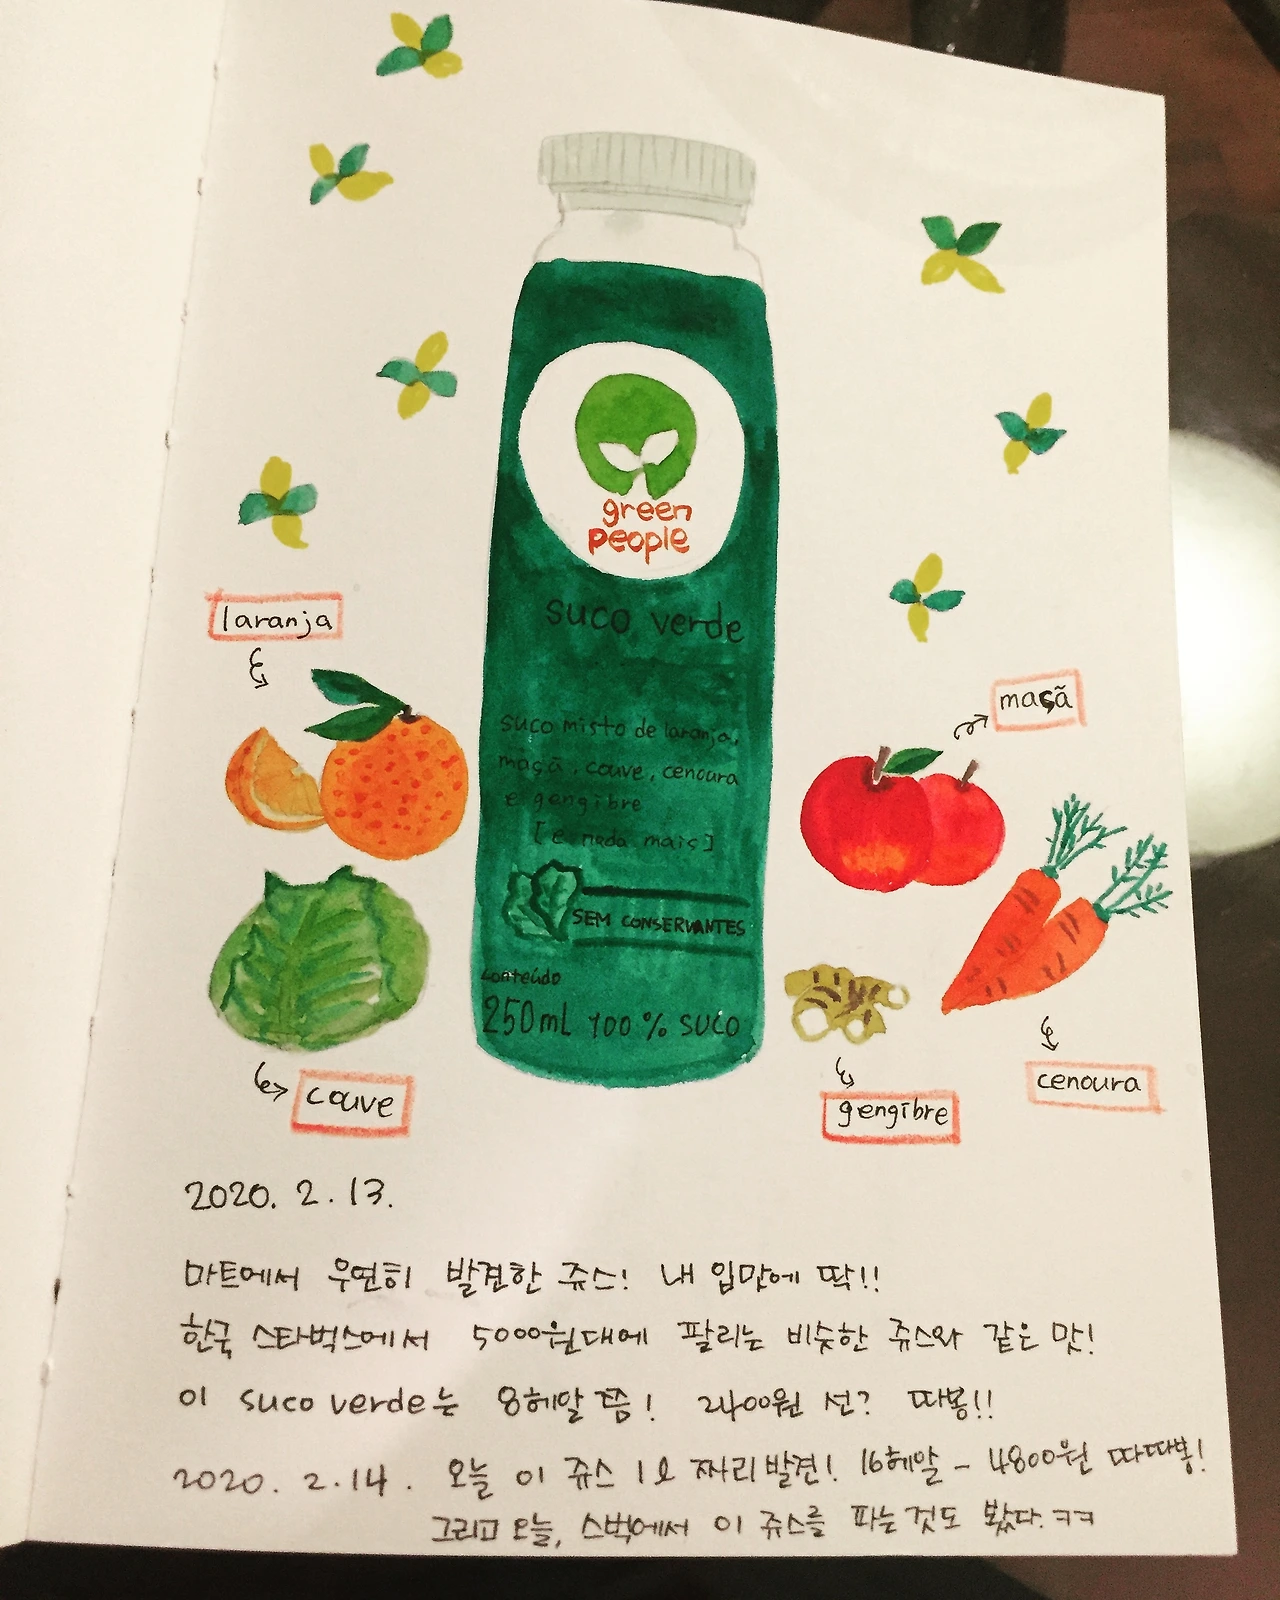 green
people
suco verde
suco misto de laranja,
maçã, couve, cenoura
e gengibre
[e nada mais]
SEM CONSERVANTES
conteúdo
250mL 100% suco
laranja
couve
maçã
cenoura
gengibre
2020. 2. 13.
마트에서 우연히 발견한 쥬스! 내 입맛에 딱!!
한국 스타벅스에서 5000원대에 팔리는 비슷한 쥬스와 같은 맛!
이 suco verde는 8헤알쯤! 2400원 선? 따봉!!
2020. 2. 14. 오늘 이 쥬스 1ℓ 짜리 발견! 16헤알 - 4800원 따따봉!
그리고 오늘, 스벅에서 이 쥬스를 파는 것도 봤다. ㅋㅋ